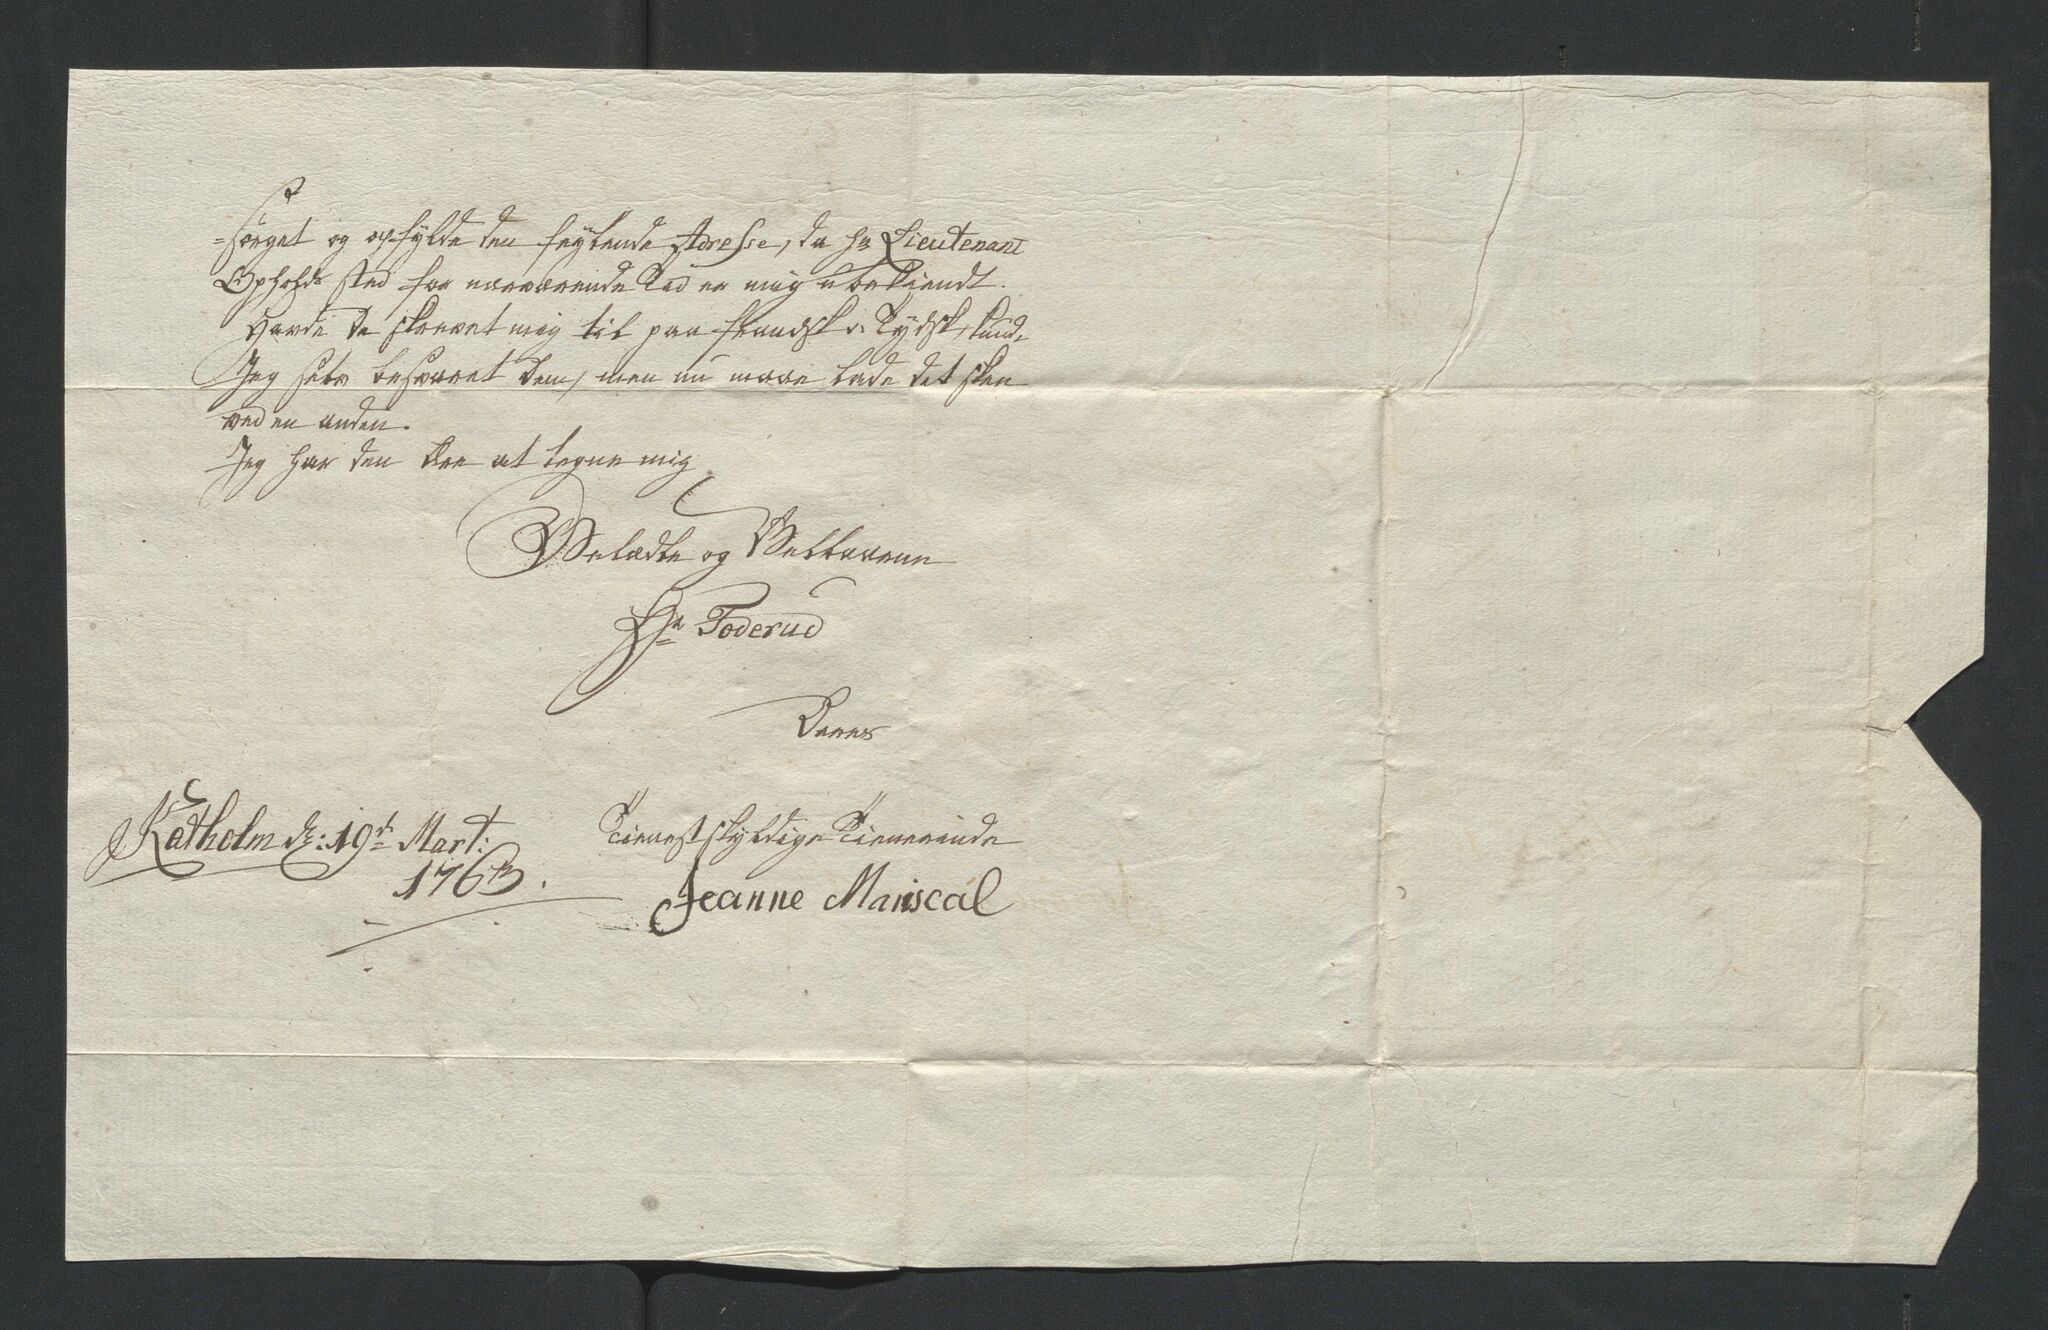 =sørget og opfylde den feylende Adresse, da Hr Lieutenant
Opholds sted for nærværende Tid er mig ubekiendt.
Havde De skrevet mig til paa Frandsk o. Tydsk, kund-
Jeg selv besvaret Dem, men nu maae lade det skee
ved en anden.
Jeg har den Ære at tegne mig
Velædle og Velbaarene
Hr Toderud
Deres
Katholm d: 19de Mart:
1763.
Tienestskyldige Tienerinde
Jeanne Mariscal